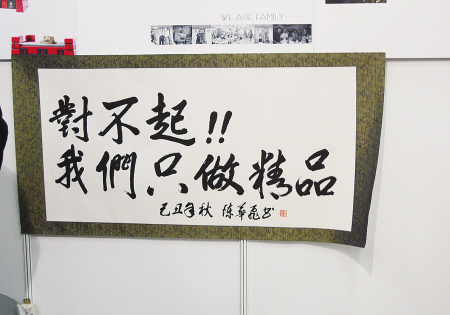 WE ARE FAMILY......
對不起!!
我們只做精品
己丑年秋 陈華彪书